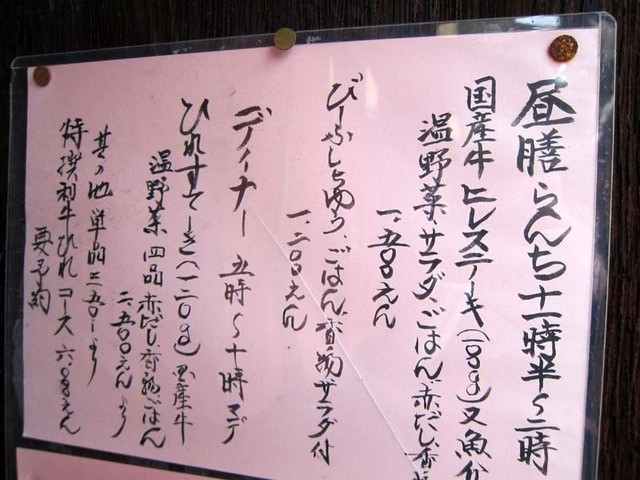 昼膳 らんち 十一時半〜二時
国産牛 ヒレステーキ(一〇〇g)又魚介
温野菜、サラダ、ごはん、赤だし、香物
一、五〇〇えん
びーふしちゅう、ごはん、香物、サラダ付
一、二〇〇えん
ディナー 五時〜十時マデ
ひれすてーき(一二〇g)国産牛
温野菜 四品 赤だし、香物、ごはん
二、五〇〇えんより
其の他 単品 二五〇〜より
特撰和牛ひれコース 六、〇〇〇えん
要予約